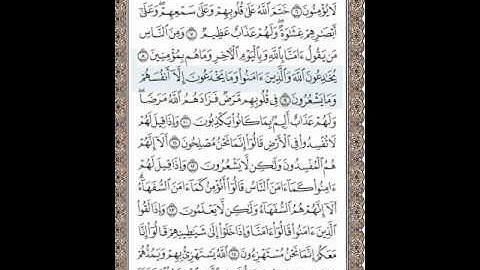 لَا يُؤْمِنُونَ ۝٦ خَتَمَ ٱللَّهُ عَلَىٰ قُلُوبِهِمْ وَعَلَىٰ سَمْعِهِمْۖ وَعَلَىٰٓ
أَبْصَٰرِهِمْ غِشَٰوَةٞۖ وَلَهُمْ عَذَابٌ عَظِيمٞ ۝٧ وَمِنَ ٱلنَّاسِ
مَن يَقُولُ ءَامَنَّا بِٱللَّهِ وَبِٱلْيَوْمِ ٱلْأٓخِرِ وَمَا هُم بِمُؤْمِنِينَ ۝٨
يُخَٰدِعُونَ ٱللَّهَ وَٱلَّذِينَ ءَامَنُواْ وَمَا يَخْدَعُونَ إِلَّآ أَنفُسَهُمْ
وَمَا يَشْعُرُونَ ۝٩ فِي قُلُوبِهِم مَّرَضٞ فَزَادَهُمُ ٱللَّهُ مَرَضٗاۖ
وَلَهُمْ عَذَابٌ أَلِيمُۢ بِمَا كَانُواْ يَكْذِبُونَ ۝١٠ وَإِذَا قِيلَ لَهُمْ
لَا تُفْسِدُواْ فِي ٱلْأَرْضِ قَالُوٓاْ إِنَّمَا نَحْنُ مُصْلِحُونَ ۝١١ أَلَآ إِنَّهُمْ
هُمُ ٱلْمُفْسِدُونَ وَلَٰكِن لَّا يَشْعُرُونَ ۝١٢ وَإِذَا قِيلَ لَهُمْ
ءَامِنُواْ كَمَآ ءَامَنَ ٱلنَّاسُ قَالُوٓاْ أَنُؤْمِنُ كَمَآ ءَامَنَ ٱلسُّفَهَآءُۗ
أَلَآ إِنَّهُمْ هُمُ ٱلسُّفَهَآءُ وَلَٰكِن لَّا يَعْلَمُونَ ۝١٣ وَإِذَا لَقُواْ
ٱلَّذِينَ ءَامَنُواْ قَالُوٓاْ ءَامَنَّا وَإِذَا خَلَوْاْ إِلَىٰ شَيَٰطِينِهِمْ قَالُوٓاْ إِنَّا
مَعَكُمْ إِنَّمَا نَحْنُ مُسْتَهْزِءُونَ ۝١٤ ٱللَّهُ يَسْتَهْزِئُ بِهِمْ وَيَمُدُّهُمْ